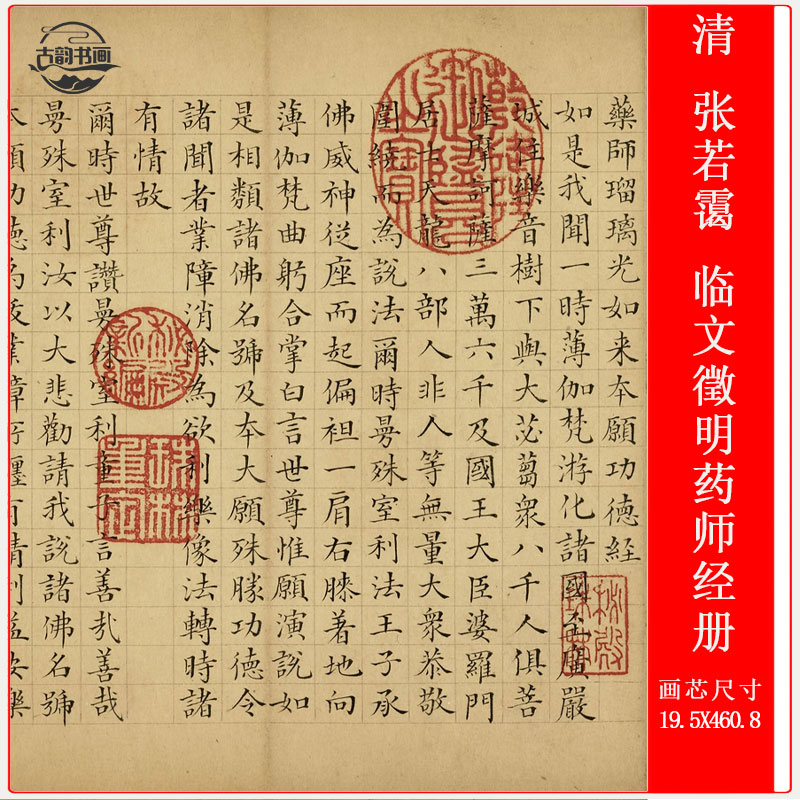 古韵书画
清 张若霭 临文徵明药师经册
画芯尺寸
19.5X460.8
藥師瑠璃光如来本願功德經
如是我聞一時薄伽梵游化諸國至廣嚴
城住樂音樹下與大苾蒭衆八千人俱菩
薩摩訶薩三萬六千及國王大臣婆羅門
居士天龍八部人非人等無量大衆恭敬
圍繞而為說法爾時曼殊室利法王子承
佛威神從座而起偏袒一肩右膝著地向
薄伽梵曲躬合掌白言世尊惟願演說如
是相類諸佛名號及本大願殊勝功德令
諸聞者業障消除為欲利樂像法轉時諸
有情故
爾時世尊讚曼殊室利童子言善哉善哉
曼殊室利汝以大悲勸請我說諸佛名號
本願功德為拔業障所纏有情利益安樂
乾隆御覽之寶
秘殿新編
珠林重定
秘殿珠林